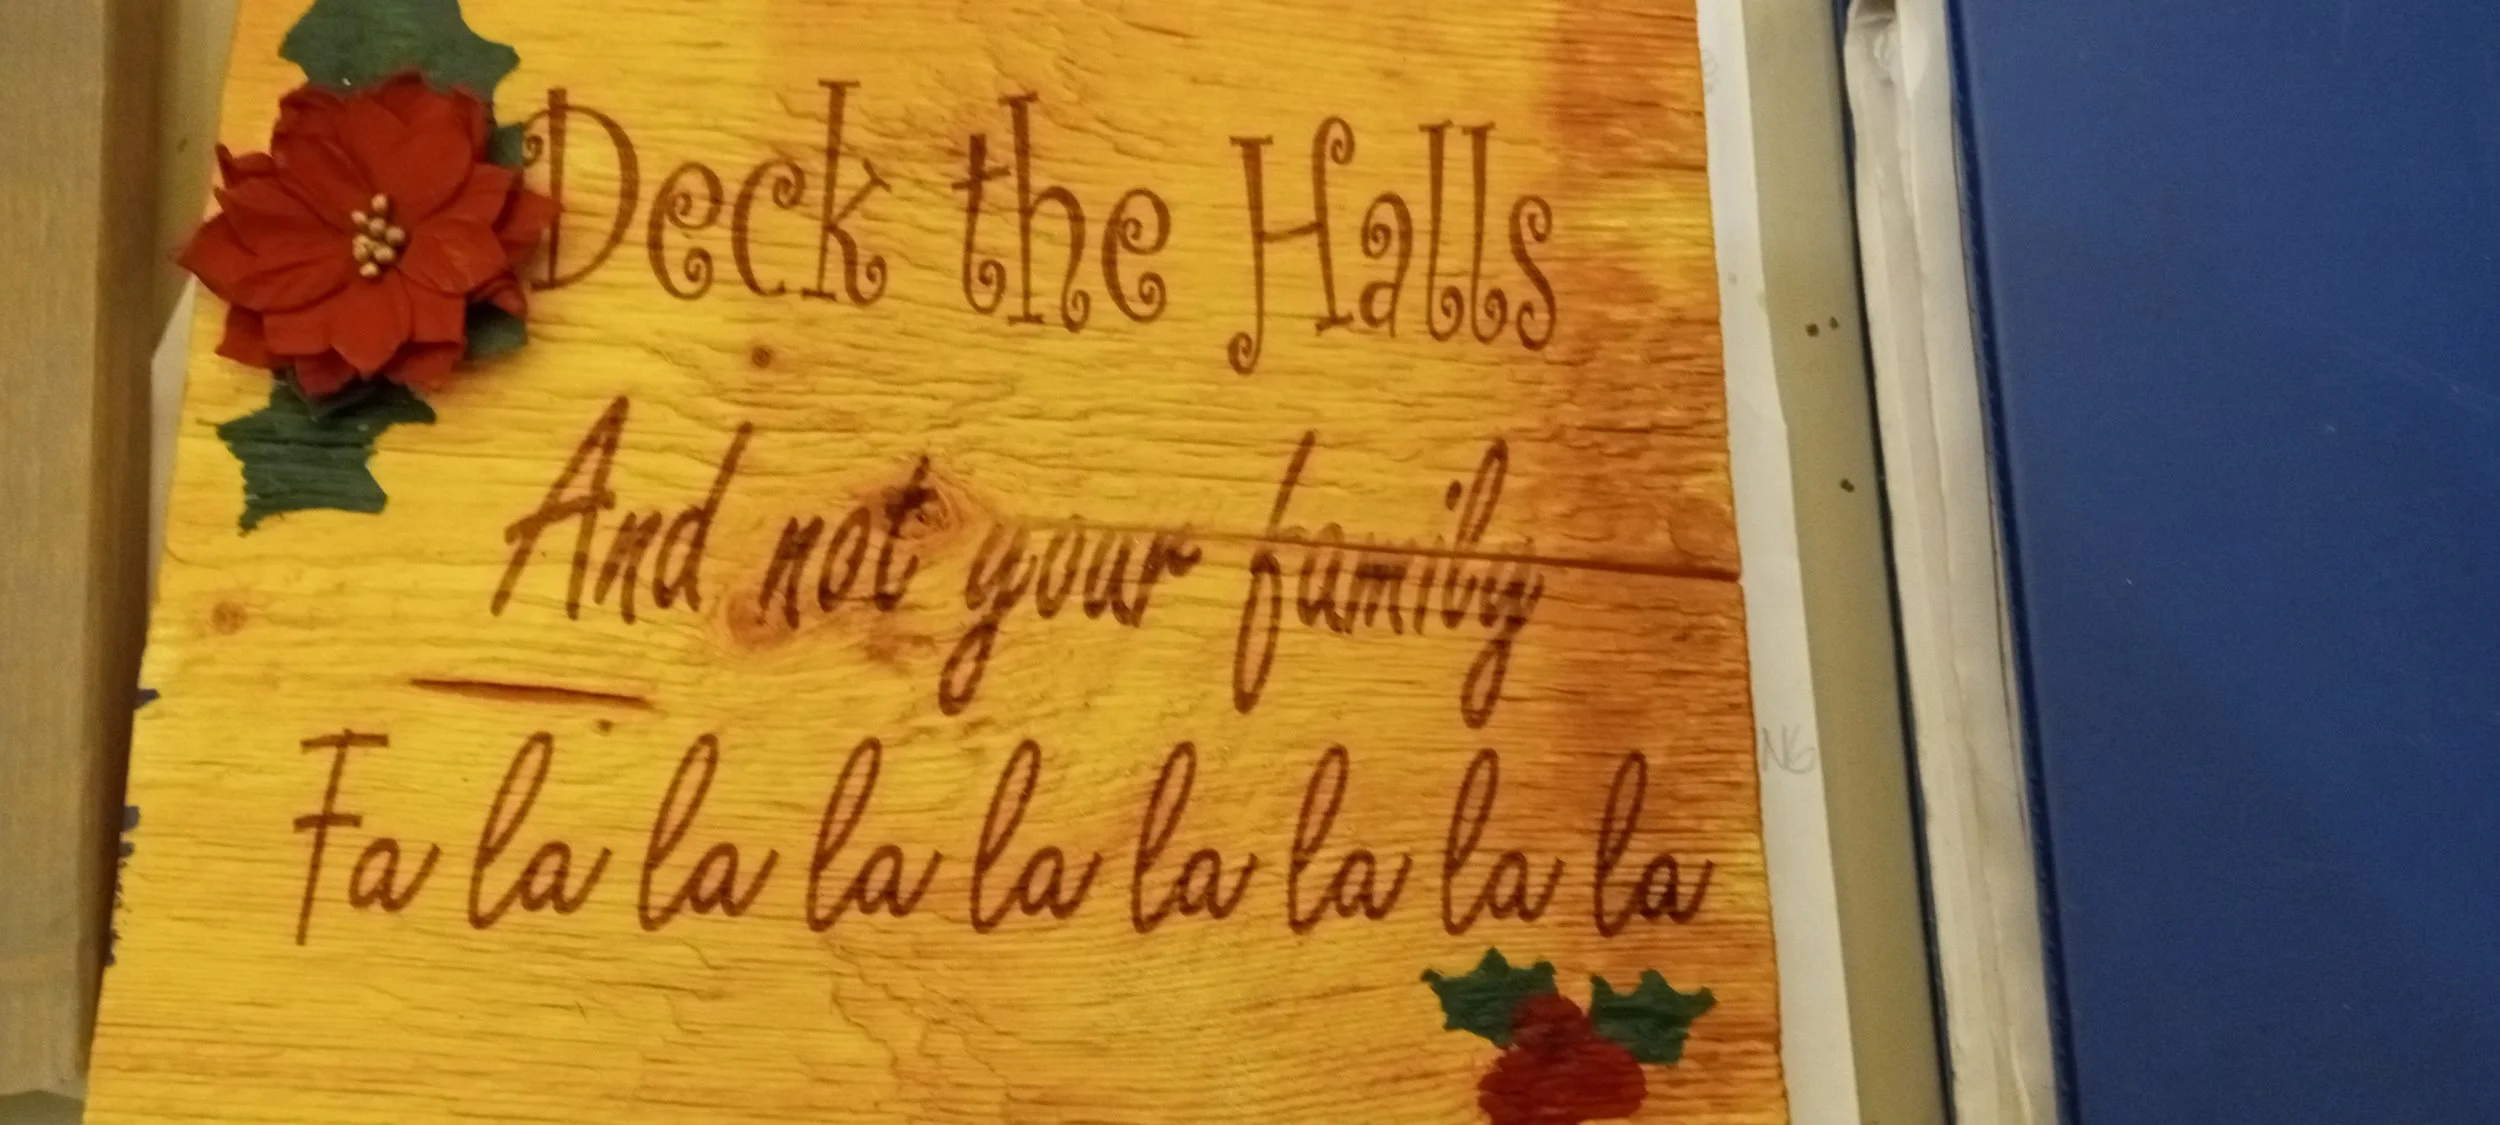 Deck the Halls
And not your family
Fa la la la la la la la la
NG